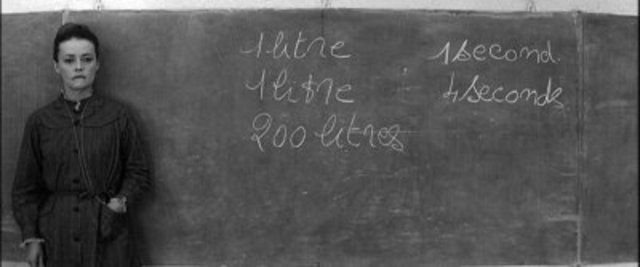 1 litre 1 second.
1 litre 4 seconds
200 litres